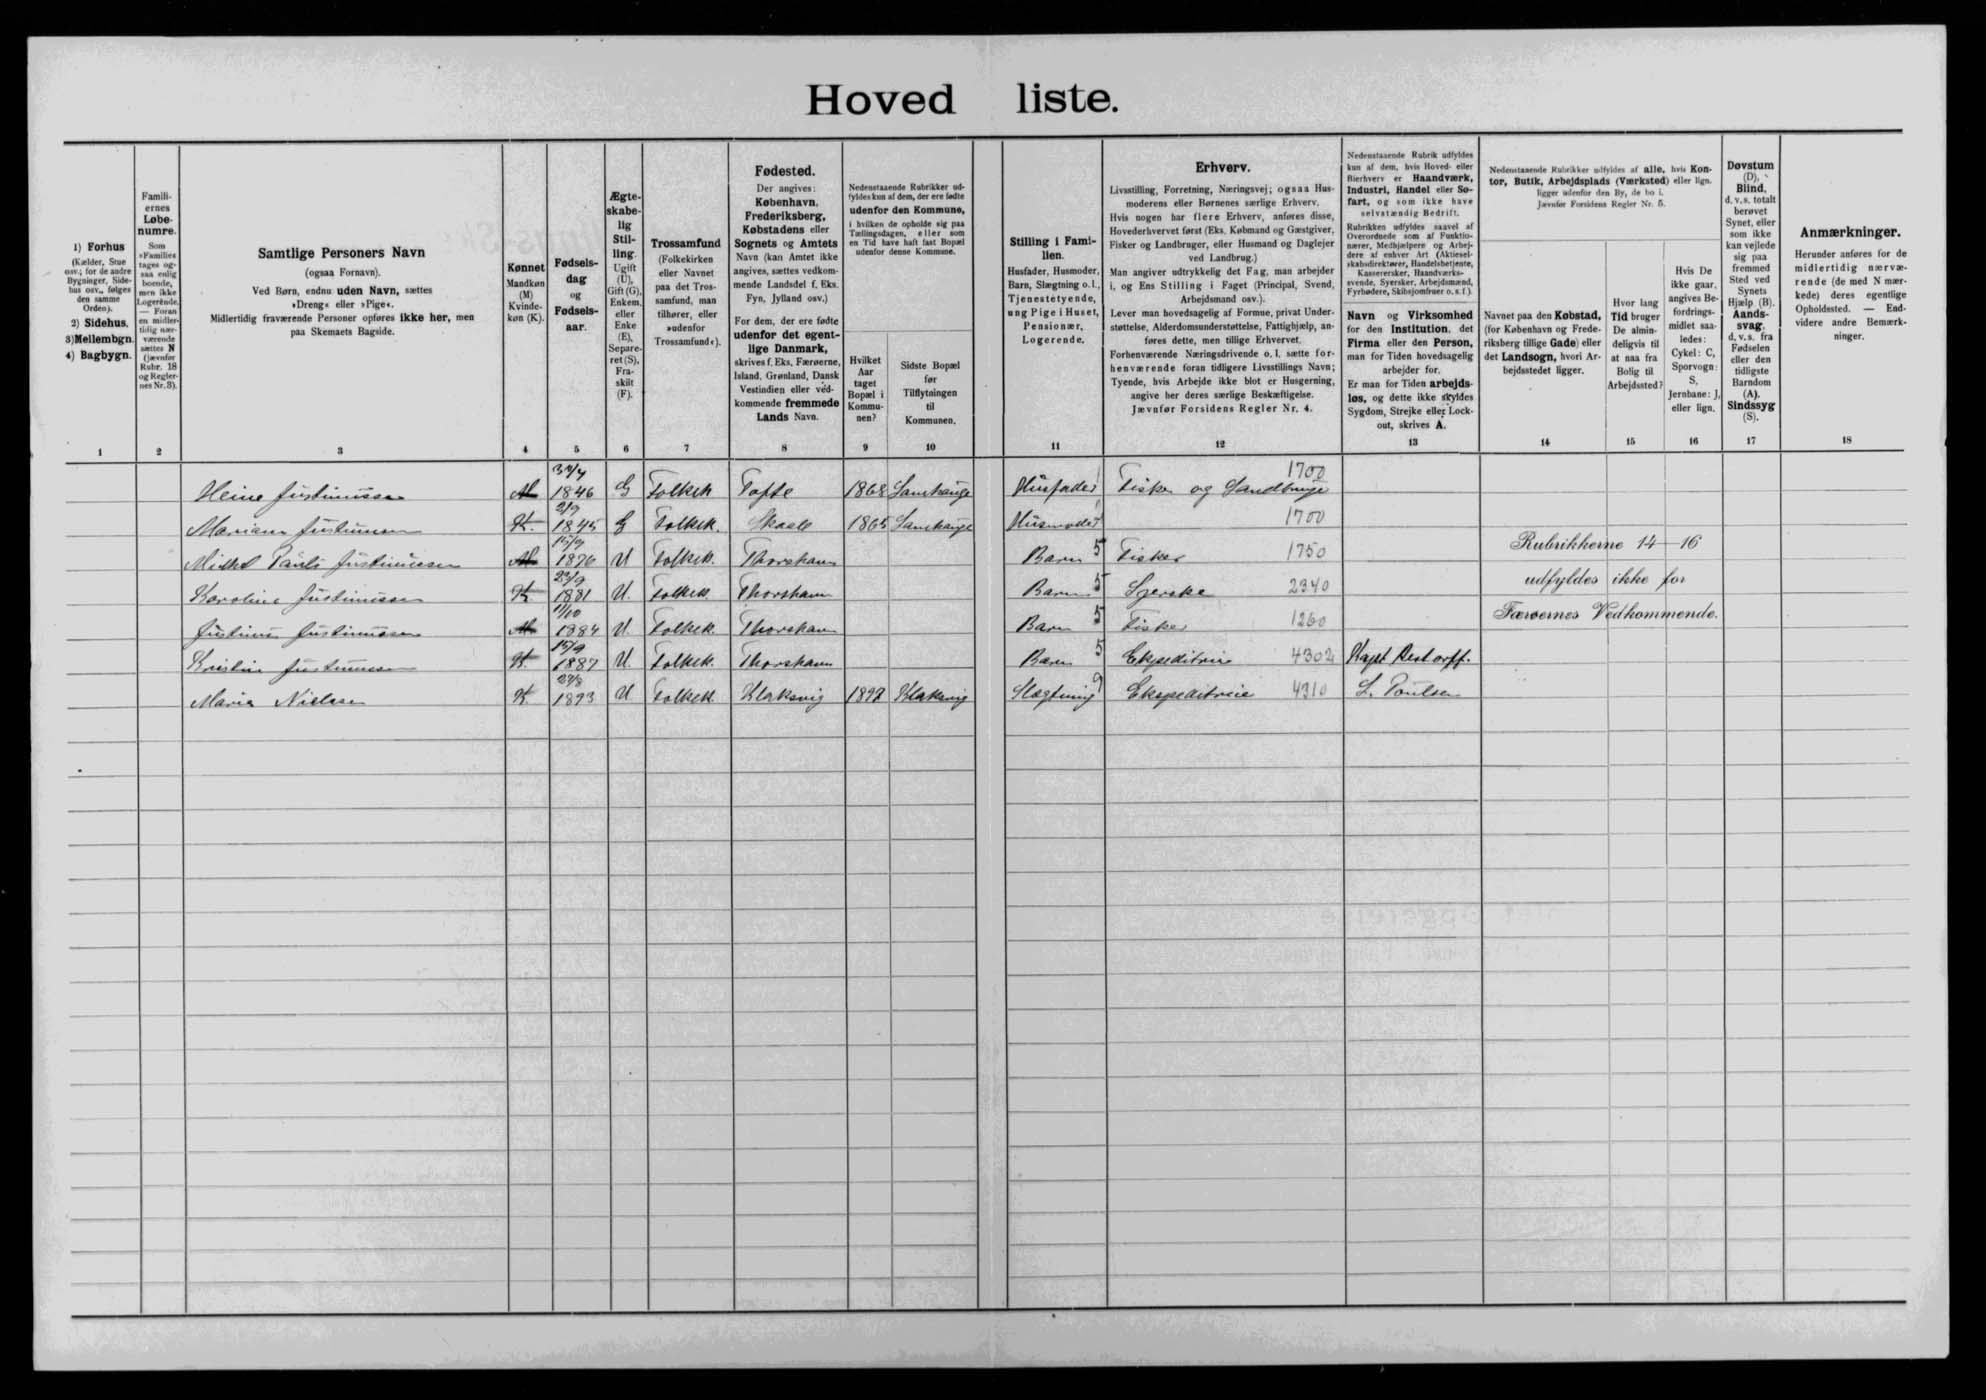 Hovedliste.
1) Forhus
(Kælder, Stue
osv.; for de andre
Bygninger, Side-
hus osv., følges
den samme
Orden).
2) Sidehus,
3) Mellembgn.
4) Bagbygn.
1
Famili-
ernes
Løbe-
numre.
Som
»Familie«
tages og-
saa enlig
boende,
men ikke
Logerende.
— Foran
en midler-
tidig nær-
værende
sættes N
(jævnfør
Rubr. 18
og Regler-
nes Nr. 3).
2
Samtlige Personers Navn
(ogsaa Fornavn).
Ved Børn, endnu uden Navn, sættes
»Dreng« eller »Pige«.
Midlertidig fraværende Personer opføres ikke her, men
paa Skemaets Bagside.
3
Kønnet
Mandkøn
(M)
Kvinde-
køn (K).
4
Fødsels-
dag
og
Fødsels-
aar.
5
Ægte-
skabe-
lig
Stil-
ling.
Ugift
(U),
Gift (G),
Enkem.
eller
Enke
(E),
Separe-
ret (S),
Fra-
skilt
(F).
6
Trossamfund
(Folkekirken
eller Navnet
paa det Tros-
samfund, man
tilhører, eller
»udenfor
Trossamfund«).
7
Fødested.
Der angives:
København,
Frederiksberg,
Købstadens eller
Sognets og Amtets
Navn (kan Amtet ikke
angives, sættes vedkom-
mende Landsdel f. Eks.
Fyn, Jylland osv.)
For dem, der ere fødte
udenfor det egent-
lige Danmark,
skrives f. Eks. Færøerne,
Island, Grønland, Dansk
Vestindien eller ved-
kommende fremmede
Lands Navn.
8
Nedenstaaende Rubrikker ud-
fyldes kun af dem, der ere fødte
udenfor den Kommune,
i hvilken de opholde sig paa
Tællingsdagen, eller som
en Tid have haft fast Bopæl
udenfor denne Kommune.
Hvilket
Aar
taget
Bopæl i
Kommu-
nen?
9
Sidste Bopæl
før
Tilflytningen
til
Kommunen.
10
Stilling i Fami-
lien.
Husfader, Husmoder,
Barn, Slægtning o. l.,
Tjenestetyende,
ung Pige i Huset,
Pensionær,
Logerende.
11
Erhverv.
Livsstilling, Forretning, Næringsvej; ogsaa Hus-
moderens eller Børnenes særlige Erhverv.
Hvis nogen har flere Erhverv, anføres disse,
Hovederhvervet først (Eks. Købmand og Gæstgiver,
Fisker og Landbruger, eller Husmand og Daglejer
ved Landbrug.)
Man angiver udtrykkelig det Fag, man arbejder
i, og Ens Stilling i Faget (Principal, Svend,
Arbejdsmand osv.).
Lever man hovedsagelig af Formue, privat Under-
støttelse, Alderdomsunderstøttelse, Fattighjælp, an-
føres dette, men tillige Erhvervet.
Forhenværende Næringsdrivende o. l. sætte for-
henværende foran tidligere Livsstillings Navn;
Tyende, hvis Arbejde ikke blot er Husgerning,
angive her deres særlige Beskæftigelse.
Jævnfør Forsidens Regler Nr. 4.
12
Nedenstaaende Rubrik udfyldes
kun af dem, hvis Hoved- eller
Bierhverv er Haandværk,
Industri, Handel eller Sø-
fart, og som ikke have
selvstændig Bedrift.
Rubrikken udfyldes saavel af
Overordnede som af Funktio-
nærer, Medhjælpere og Arbej-
dere af enhver Art (Aktiesel-
skabsdirektører, Handelsbetjente,
Kasserersker, Haandværks-
svende, Syersker, Arbejdsmænd,
Fyrbødere, Skibsjomfruer o. s. f.).
Navn og Virksomhed
for den Institution, det
Firma eller den Person,
man for Tiden hovedsagelig
arbejder for.
Er man for Tiden arbejds-
løs, og dette ikke skyldes
Sygdom, Strejke eller Lock-
out, skrives A.
13
Nedenstaaende Rubrikker udfyldes af alle, hvis Kon-
tor, Butik, Arbejdsplads (Værksted) eller lign.
ligger udenfor den By, de bo i.
Jævnfør Forsidens Regler Nr. 5.
Navnet paa den Købstad,
(for København og Frede-
riksberg tillige Gade) eller
det Landsogn, hvori Ar-
bejdsstedet ligger.
14
Hvor lang
Tid bruger
De almin-
deligvis til
at naa fra
Bolig til
Arbejdssted?
15
Hvis De
ikke gaar,
angives Be-
fordrings-
midlet saa-
ledes:
Cykel: C,
Sporvogn:
S,
Jernbane: J,
eller lign.
16
Døvstum
(D),
Blind,
d. v. s. totalt
berøvet
Synet, eller
som ikke
kan vejlede
sig paa
fremmed
Sted ved
Synets
Hjælp (B).
Aands-
svag,
d. v. s. fra
Fødselen
eller den
tidligste
Barndom
(A).
Sindssyg
(S).
17
Anmærkninger.
Herunder anføres for de
midlertidig nærvæ-
rende (de med N mær-
kede) deres egentlige
Opholdssted. — End-
videre andre Bemærk-
ninger.
18
Heine Justinussen M 1846 G Folkek Tofte 1868 Husfader Fisker og Landbruger 1700
Mariane Justinussen K. 2/9 1845 G Folkek. Skaale 1865 Husmoder 1700
Justinussen M 15/9 1876 U Folkek. Thorshavn Barn 5 Fisker 1750
Rubrikkerne 14—16
Karoline Justinussen K 1881 U. Folkek. Thorshavn Barn 5 Syerske 2340
udfyldes ikke for
Justinus Justinussen M 11/10 1884 U. Folkek. Thorshavn Barn 5 Fisker 1260
Færøernes Vedkommende.
Kristin Justinussen K. 15/9 1887 U. Folkek. Thorshavn Barn 5 Ekspeditrice 4302
Maria Nielsen K. 1893 U Folkek. Klaksvig Klaksvig Slægtning 9 Ekspeditrice 4310 Poulsen